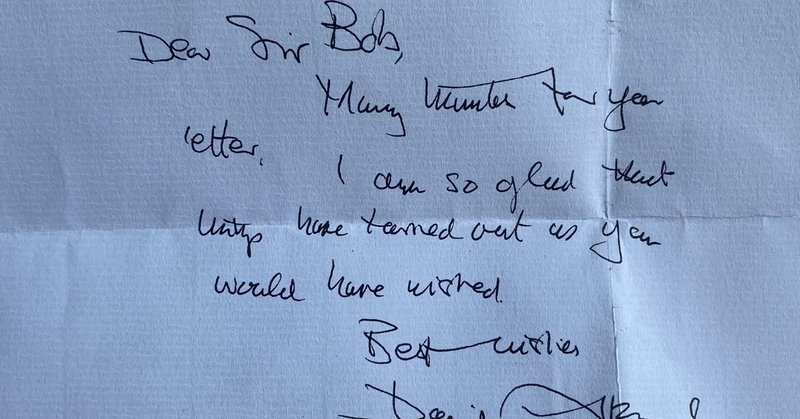 Dear Sir Bob,
Many thanks for your
letter. I am so glad that
things have turned out as you
would have wished.
Best wishes
David